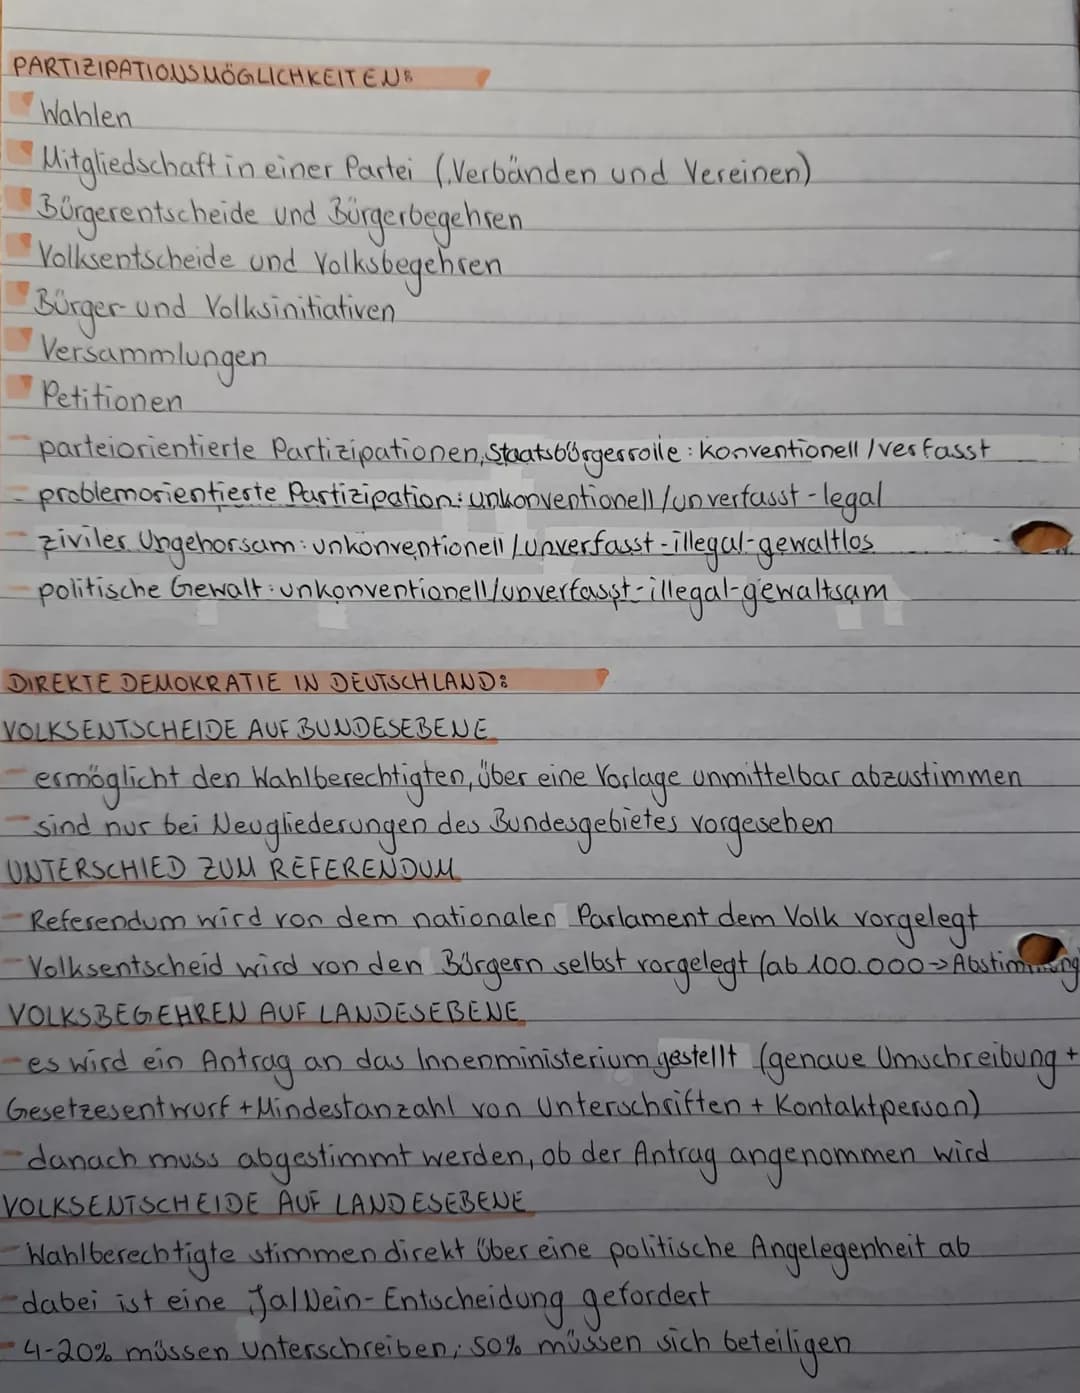 PARTIZIPATIONSMÖGLICHKEITEN:
Wahlen
Mitgliedschaft in einer Partei (,Verbänden und Vereinen)
Bürgerentscheide und Bürgerbegehren
Volksentscheide und Volksbegehren
Bürger- und Volksinitiativen
Versammlungen
Petitionen
- parteiorientierte Partizipationen, Staatsbürgerrolle: konventionell/verfasst
- problemorientierte Partizipation: unkonventionell/unverfasst - legal
- ziviler Ungehorsam: unkonventionell/unverfasst - illegal - gewaltlos
- politische Gewalt: unkonventionell/unverfasst - illegal - gewaltsam
DIREKTE DEMOKRATIE IN DEUTSCHLAND:
VOLKSENTSCHEIDE AUF BUNDESEBENE
- ermöglicht den Wahlberechtigten, über eine Vorlage unmittelbar abzustimmen
- sind nur bei Neugliederungen des Bundesgebietes vorgesehen
UNTERSCHIED ZUM REFERENDUM
- Referendum wird von dem nationalen Parlament dem Volk vorgelegt
- Volksentscheid wird von den Bürgern selbst vorgelegt (ab 100.000 -> Abstimmung
VOLKSBEGEHREN AUF LANDESEBENE
- es wird ein Antrag an das Innenministerium gestellt (genaue Umschreibung +
Gesetzesentwurf + Mindestanzahl von Unterschriften + Kontaktperson)
- danach muss abgestimmt werden, ob der Antrag angenommen wird
VOLKSENTSCHEIDE AUF LANDESEBENE
- Wahlberechtigte stimmen direkt über eine politische Angelegenheit ab
- dabei ist eine Ja/Nein-Entscheidung gefordert
- 4-20% müssen unterschreiben; 50% müssen sich beteiligen